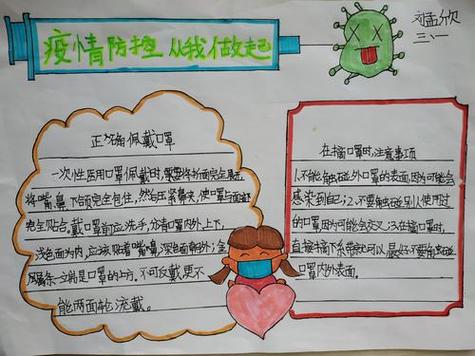 疫情防控 从我做起
刘孟欣
三、一
正确佩戴口罩
一次性医用口罩佩戴时,需要将折面完全展开
将嘴、鼻、下颌完全包住,然后压紧鼻夹,使口罩与面部
完全贴合。戴口罩前应洗手,分清口罩内外、上下,
浅色面为内,应该贴着嘴鼻,深色面朝外;金
属条一端是口罩的上方。不可反戴,更不
能两面轮流戴。
在摘口罩时,注意事项
1.不能触碰外口罩的表面,因为可能会
感染到自己;2.不要触碰别人使用过
的口罩因为可能会交叉;3.在摘口罩时,
直接摘下系带就可以,最好不要触碰
口罩内外表面。